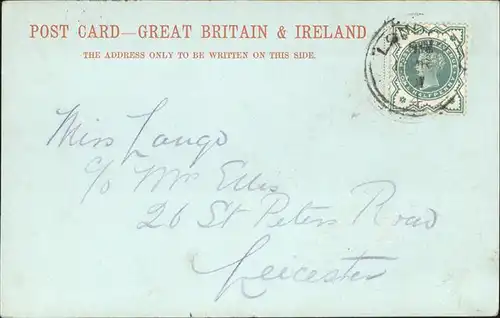 POST CARD—GREAT BRITAIN & IRELAND
THE ADDRESS ONLY TO BE WRITTEN ON THIS SIDE.
LOND
Miss Lango
c/o Mrs Ellis
26 St Peters Road
Leicester